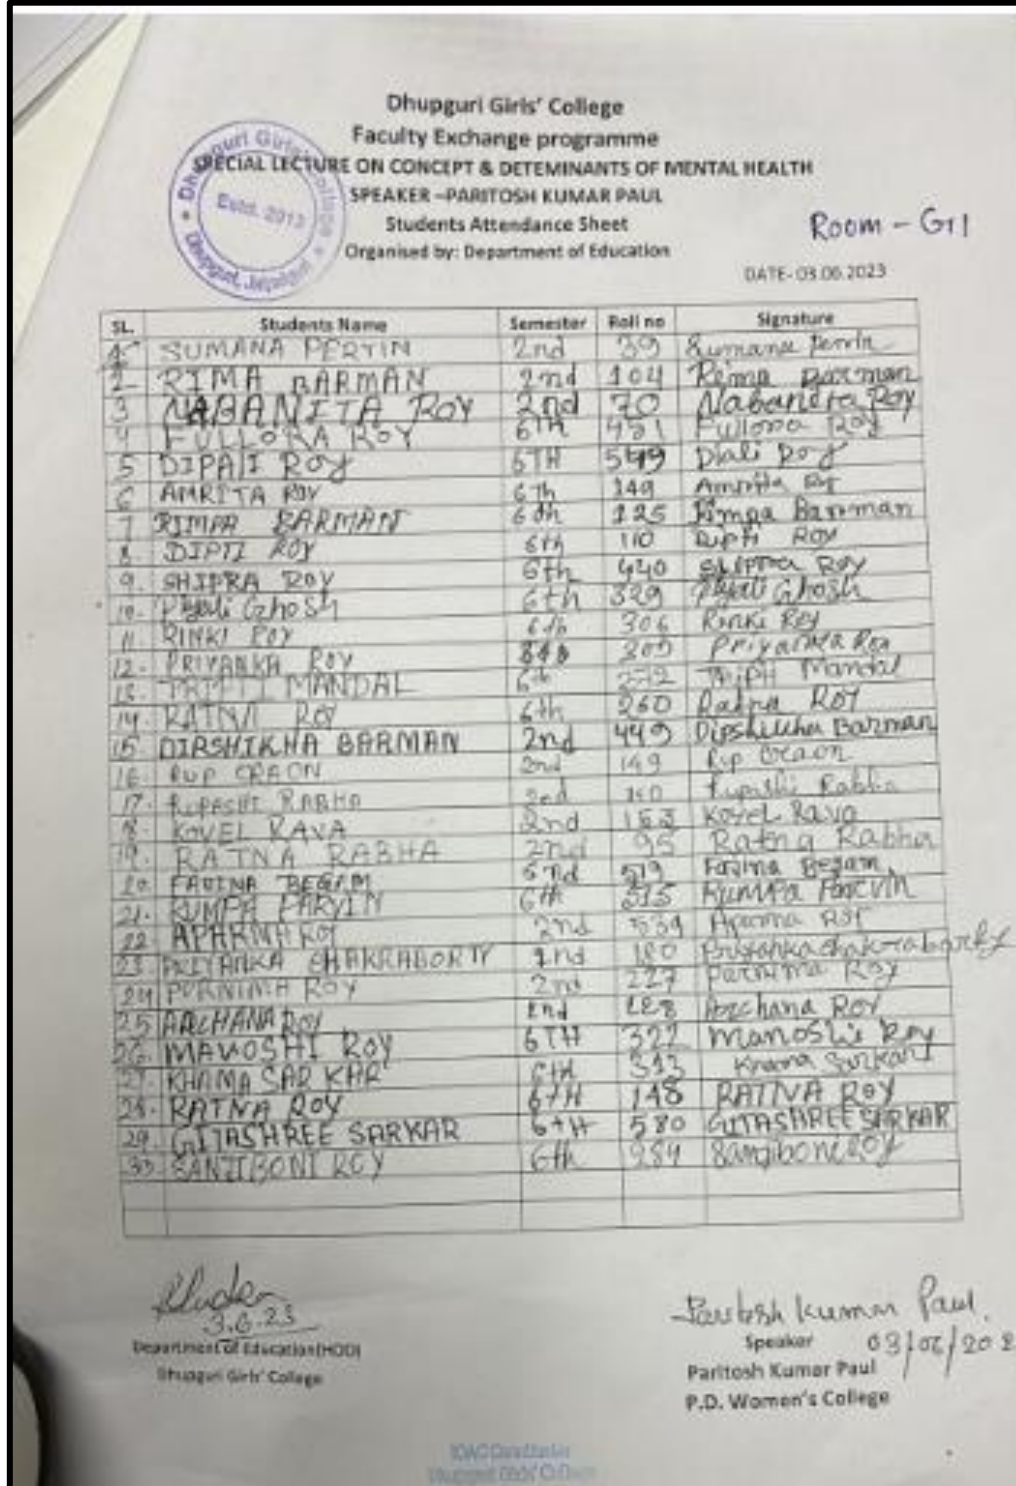 Dhupguri Girls' College
Faculty Exchange programme
SPECIAL LECTURE ON CONCEPT & DETEMINANTS OF MENTAL HEALTH
SPEAKER –PARITOSH KUMAR PAUL
Students Attendance Sheet
Organised by: Department of Education
Dhupguri Girls' College
Estd. 2013
Dhupguri, Jalpaiguri
Room - G11
DATE- 03.06.2023
SL. Students Name Semester Roll no Signature
SUMANA PERVIN 2nd 39 Sumana Pervin
2 RIMA BARMAN 2nd 104 Rima Barman
3 NABANITA ROY 2nd 70 Nabanita Roy
4 FULLORA ROY 6th Roy
5 DIPALI ROY 6TH 549 Roy
6 AMRITA ROY 6th 149 Amrita Roy
7 RIMPA BARMAN 6th 125 Rimpa Barman
8 DIPTI ROY 6th 110 Dipti Roy
9. SHIPRA ROY 6th 440 Shipra Roy
10. Piyali Ghosh 6th 329 Piyali Ghosh
11. RINKI ROY 6th 306 Rinki Roy
12. PRIYANKA ROY Priyanka Roy
13. TRIPTI MANDAL 6th Mandal
14. RATNA ROY 6th 260 Ratna Roy
15. DIPSHIKHA BARMAN 2nd 449 Barman
16. RUP ORAON 2nd 149 Rup Oraon
17. RUPASHI RABHA 2nd Rupashi Rabha
18. KOYEL RAVA 2nd Koyel Rava
19. RATNA RABHA 2nd 95 Ratna Rabha
20. BEGAM 519 Begam
21. RUMPA PARVIN 6th 315 Rumpa Parvin
22 APARNA ROY 2nd 539 Aparna Roy
23. PRIYANKA CHAKRABORTY 2nd 180 Priyanka chakraborty
24 PURNIMA ROY 2nd 227 Purnima Roy
25 ARCHANA ROY 2nd 228 Archana Roy
26. MANOSHI ROY 6TH 322 Manoshi Roy
27. KHAMA SARKAR 6th 313 Khama Sarkar
28. RATNA ROY 6th 148 RATNA ROY
29. GITASHREE SARKAR 6th 580 GITASHREE SARKAR
30 SANJIBONI ROY 6th 284 Sanjiboni Roy
3.6.23
Department of Education(HOD)
Dhupguri Girls' College
Paritosh Kumar Paul.
Speaker 03/06/202
Paritosh Kumar Paul
P.D. Women's College
IQAC Coordinator
Dhupguri Girls' College